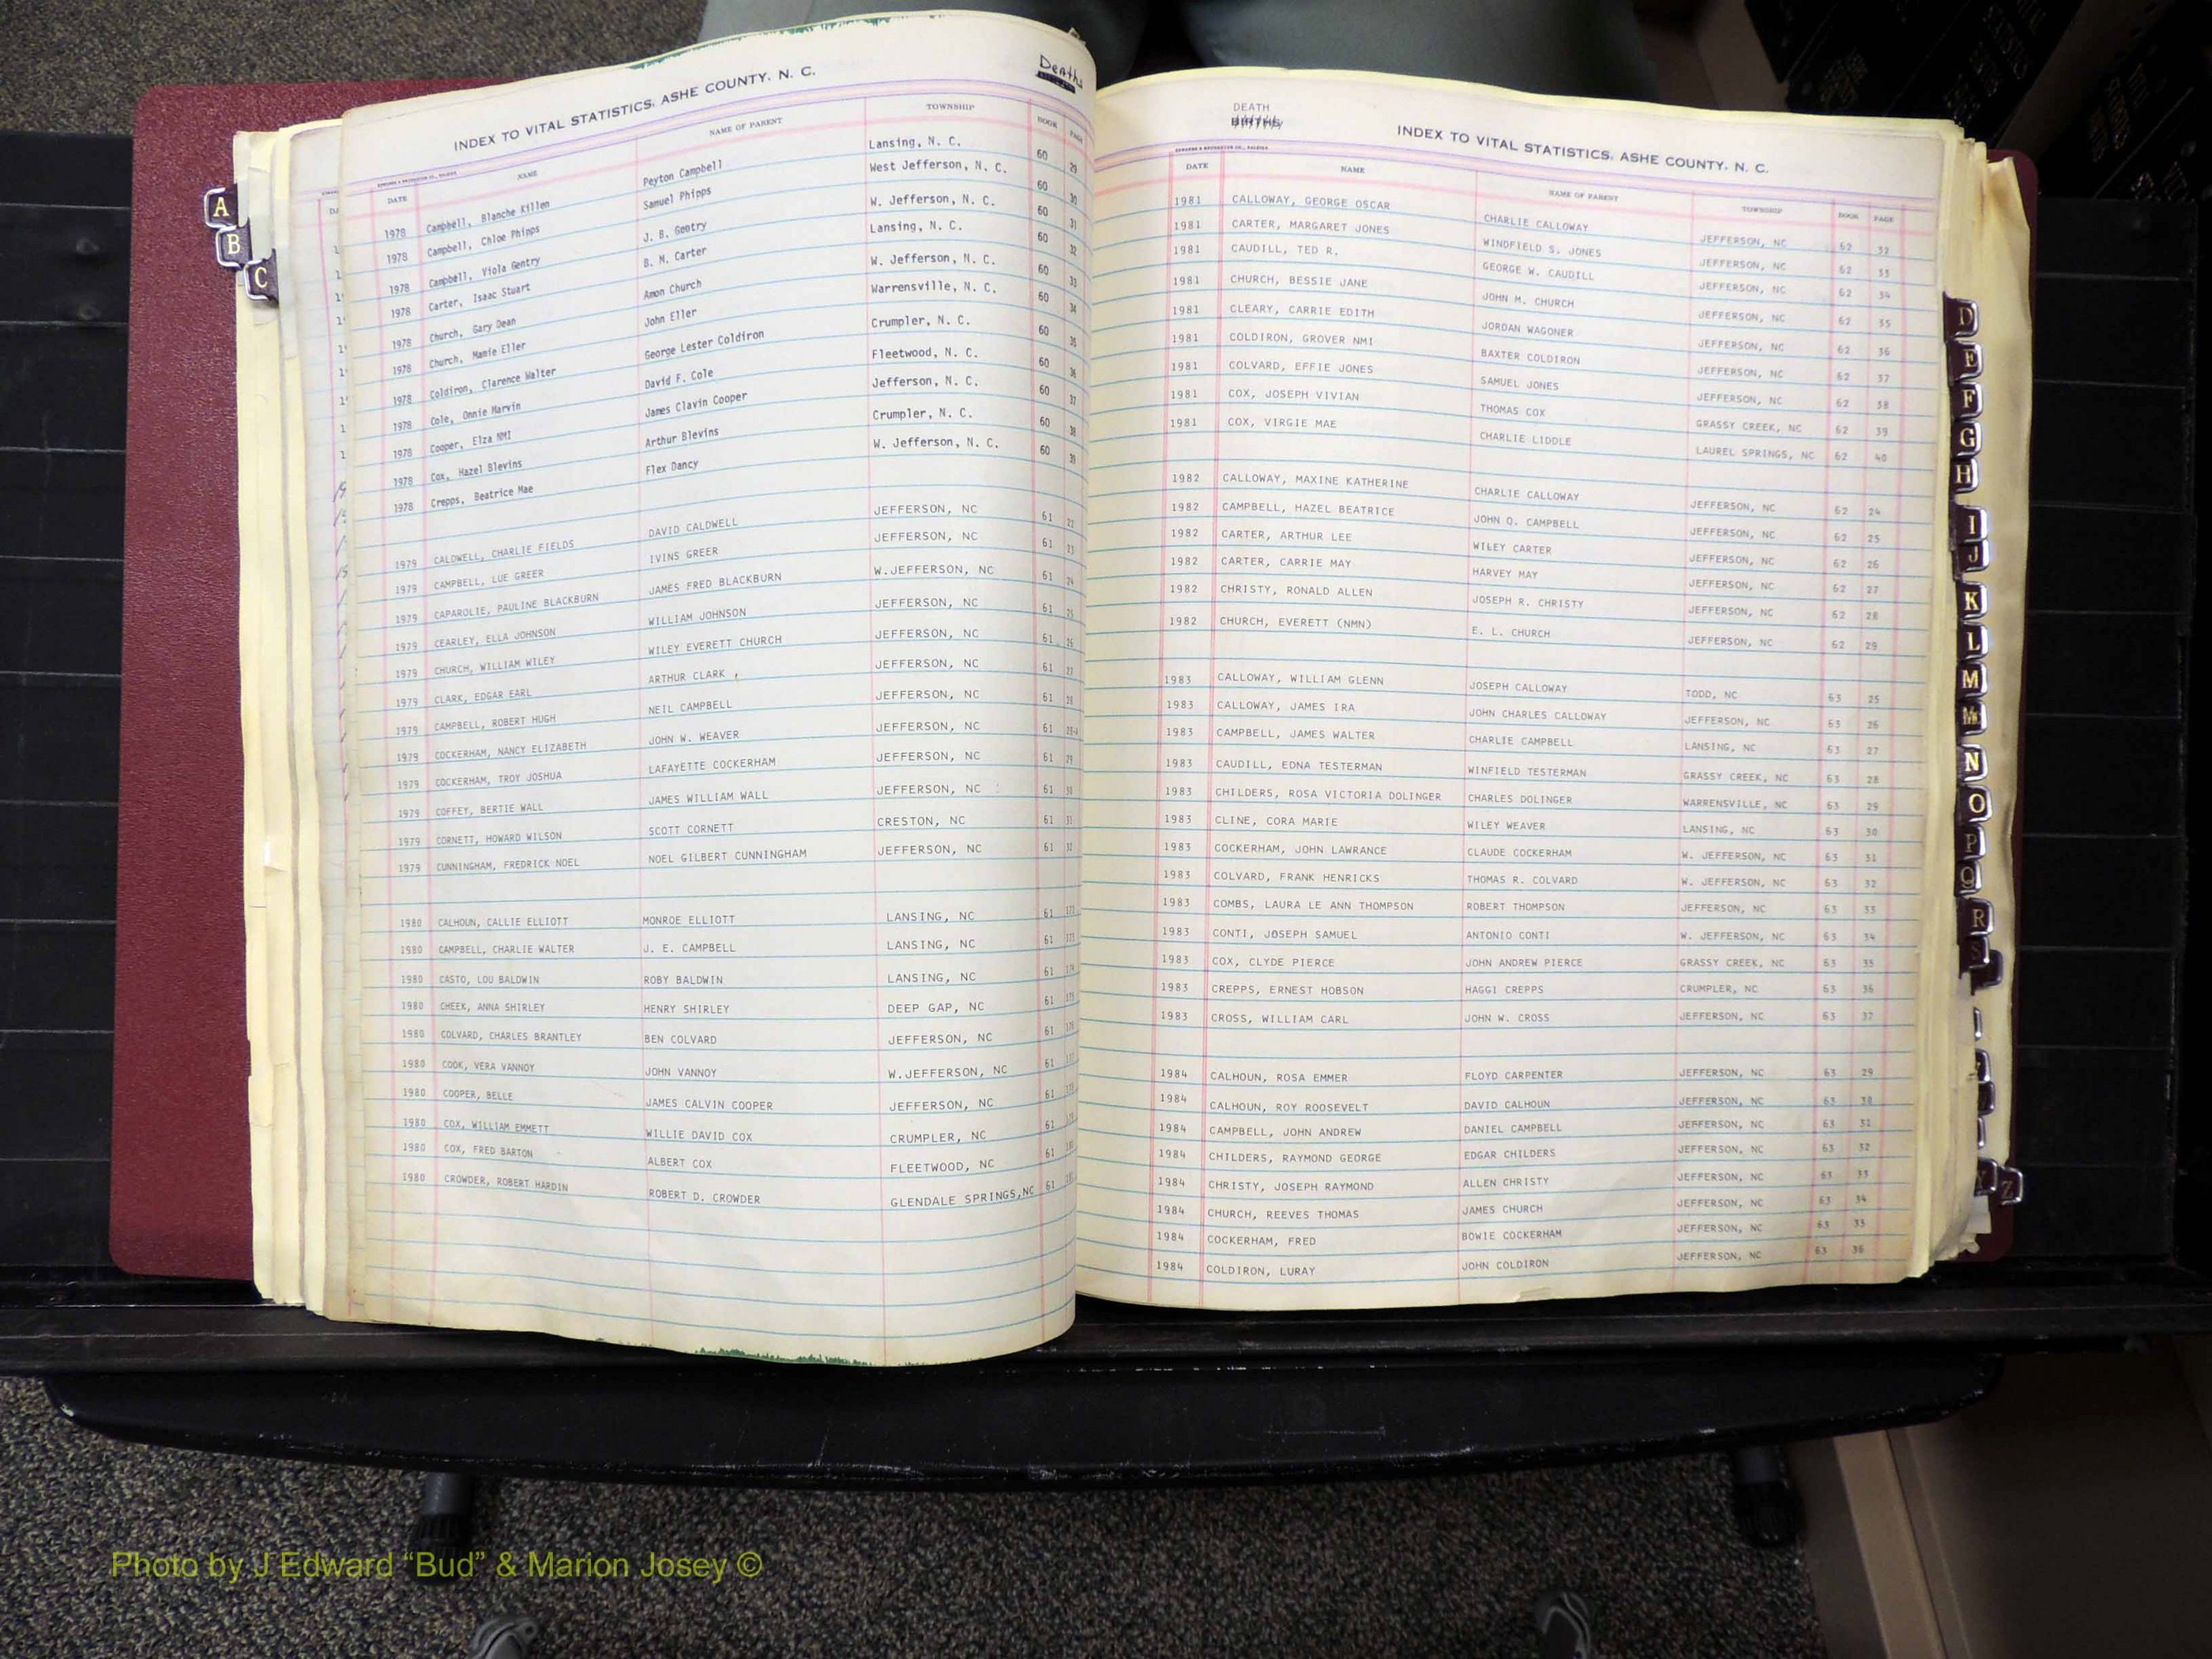 A
B
C
Deaths
INDEX TO VITAL STATISTICS, ASHE COUNTY, N. C.
DATE NAME NAME OF PARENT TOWNSHIP BOOK PAGE
1978 Campbell, Blanche Killen Peyton Campbell Lansing, N. C. 60 29
1978 Campbell, Chloe Phipps Samuel Phipps West Jefferson, N. C. 60 30
1978 Campbell, Viola Gentry J. B. Gentry W. Jefferson, N. C. 60 31
1978 Carter, Isaac Stuart B. M. Carter Lansing, N. C. 60 32
1978 Church, Gary Dean Amon Church W. Jefferson, N. C. 60 33
1978 Church, Mamie Eller John Eller Warrensville, N. C. 60 34
1978 Coldiron, Clarence Walter George Lester Coldiron Crumpler, N. C. 60 35
1978 Cole, Onnie Marvin David F. Cole Fleetwood, N. C. 60 36
1978 Cooper, Elza NMI James Clavin Cooper Jefferson, N. C. 60 37
1978 Cox, Hazel Blevins Arthur Blevins Crumpler, N. C. 60 38
1978 Crepps, Beatrice Mae Flex Dancy W. Jefferson, N. C. 60 39
1979 CALDWELL, CHARLIE FIELDS DAVID CALDWELL JEFFERSON, NC 61 22
1979 CAMPBELL, LUE GREER IVINS GREER JEFFERSON, NC 61 23
1979 CAPAROLIE, PAULINE BLACKBURN JAMES FRED BLACKBURN W.JEFFERSON, NC 61 24
1979 CEARLEY, ELLA JOHNSON WILLIAM JOHNSON JEFFERSON, NC 61 25
1979 CHURCH, WILLIAM WILEY WILEY EVERETT CHURCH JEFFERSON, NC 61 26
1979 CLARK, EDGAR EARL ARTHUR CLARK JEFFERSON, NC 61 27
1979 CAMPBELL, ROBERT HUGH NEIL CAMPBELL JEFFERSON, NC 61 28
1979 COCKERHAM, NANCY ELIZABETH JOHN W. WEAVER JEFFERSON, NC 61
1979 COCKERHAM, TROY JOSHUA LAFAYETTE COCKERHAM JEFFERSON, NC 61 29
1979 COFFEY, BERTIE WALL JAMES WILLIAM WALL JEFFERSON, NC 61 30
1979 CORNETT, HOWARD WILSON SCOTT CORNETT CRESTON, NC 61 31
1979 CUNNINGHAM, FREDRICK NOEL NOEL GILBERT CUNNINGHAM JEFFERSON, NC 61 32
1980 CALHOUN, CALLIE ELLIOTT MONROE ELLIOTT LANSING, NC 61
1980 CAMPBELL, CHARLIE WALTER J. E. CAMPBELL LANSING, NC 61
1980 CASTO, LOU BALDWIN ROBY BALDWIN LANSING, NC 61
1980 CHEEK, ANNA SHIRLEY HENRY SHIRLEY DEEP GAP, NC 61
1980 COLVARD, CHARLES BRANTLEY BEN COLVARD JEFFERSON, NC 61
1980 COOK, VERA VANNOY JOHN VANNOY W.JEFFERSON, NC 61
1980 COOPER, BELLE JAMES CALVIN COOPER JEFFERSON, NC 61
1980 COX, WILLIAM EMMETT WILLIE DAVID COX CRUMPLER, NC 61
1980 COX, FRED BARTON ALBERT COX FLEETWOOD, NC 61
1980 CROWDER, ROBERT HARDIN ROBERT D. CROWDER GLENDALE SPRINGS,NC 61
DEATH
BIRTHS
INDEX TO VITAL STATISTICS, ASHE COUNTY, N. C.
DATE NAME NAME OF PARENT TOWNSHIP BOOK PAGE
1981 CALLOWAY, GEORGE OSCAR CHARLIE CALLOWAY JEFFERSON, NC 62 32
1981 CARTER, MARGARET JONES WINDFIELD S. JONES JEFFERSON, NC 62 33
1981 CAUDILL, TED R. GEORGE W. CAUDILL JEFFERSON, NC 62 34
1981 CHURCH, BESSIE JANE JOHN M. CHURCH JEFFERSON, NC 62 35
1981 CLEARY, CARRIE EDITH JORDAN WAGONER JEFFERSON, NC 62 36
1981 COLDIRON, GROVER NMI BAXTER COLDIRON JEFFERSON, NC 62 37
1981 COLVARD, EFFIE JONES SAMUEL JONES JEFFERSON, NC 62 38
1981 COX, JOSEPH VIVIAN THOMAS COX GRASSY CREEK, NC 62 39
1981 COX, VIRGIE MAE CHARLIE LIDDLE LAUREL SPRINGS, NC 62 40
1982 CALLOWAY, MAXINE KATHERINE CHARLIE CALLOWAY JEFFERSON, NC 62 24
1982 CAMPBELL, HAZEL BEATRICE JOHN Q. CAMPBELL JEFFERSON, NC 62 25
1982 CARTER, ARTHUR LEE WILEY CARTER JEFFERSON, NC 62 26
1982 CARTER, CARRIE MAY HARVEY MAY JEFFERSON, NC 62 27
1982 CHRISTY, RONALD ALLEN JOSEPH R. CHRISTY JEFFERSON, NC 62 28
1982 CHURCH, EVERETT (NMN) E. L. CHURCH JEFFERSON, NC 62 29
1983 CALLOWAY, WILLIAM GLENN JOSEPH CALLOWAY TODD, NC 63 25
1983 CALLOWAY, JAMES IRA JOHN CHARLES CALLOWAY JEFFERSON, NC 63 26
1983 CAMPBELL, JAMES WALTER CHARLIE CAMPBELL LANSING, NC 63 27
1983 CAUDILL, EDNA TESTERMAN WINFIELD TESTERMAN GRASSY CREEK, NC 63 28
1983 CHILDERS, ROSA VICTORIA DOLINGER CHARLES DOLINGER WARRENSVILLE, NC 63 29
1983 CLINE, CORA MARIE WILEY WEAVER LANSING, NC 63 30
1983 COCKERHAM, JOHN LAWRANCE CLAUDE COCKERHAM W. JEFFERSON, NC 63 31
1983 COLVARD, FRANK HENRICKS THOMAS R. COLVARD W. JEFFERSON, NC 63 32
1983 COMBS, LAURA LE ANN THOMPSON ROBERT THOMPSON JEFFERSON, NC 63 33
1983 CONTI, JOSEPH SAMUEL ANTONIO CONTI W. JEFFERSON, NC 63 34
1983 COX, CLYDE PIERCE JOHN ANDREW PIERCE GRASSY CREEK, NC 63 35
1983 CREPPS, ERNEST HOBSON HAGGI CREPPS CRUMPLER, NC 63 36
1983 CROSS, WILLIAM CARL JOHN W. CROSS JEFFERSON, NC 63 37
1984 CALHOUN, ROSA EMMER FLOYD CARPENTER JEFFERSON, NC 63 29
1984 CALHOUN, ROY ROOSEVELT DAVID CALHOUN JEFFERSON, NC 63 30
1984 CAMPBELL, JOHN ANDREW DANIEL CAMPBELL JEFFERSON, NC 63 31
1984 CHILDERS, RAYMOND GEORGE EDGAR CHILDERS JEFFERSON, NC 63 32
1984 CHRISTY, JOSEPH RAYMOND ALLEN CHRISTY JEFFERSON, NC 63 33
1984 CHURCH, REEVES THOMAS JAMES CHURCH JEFFERSON, NC 63 34
1984 COCKERHAM, FRED BOWIE COCKERHAM JEFFERSON, NC 63 35
1984 COLDIRON, LURAY JOHN COLDIRON JEFFERSON, NC 63 36
D
E
F
G
H
I
J
K
L
M
Mc
N
O
P
Q
R
S
Y
Z
Photo by J Edward “Bud” & Marion Josey ©